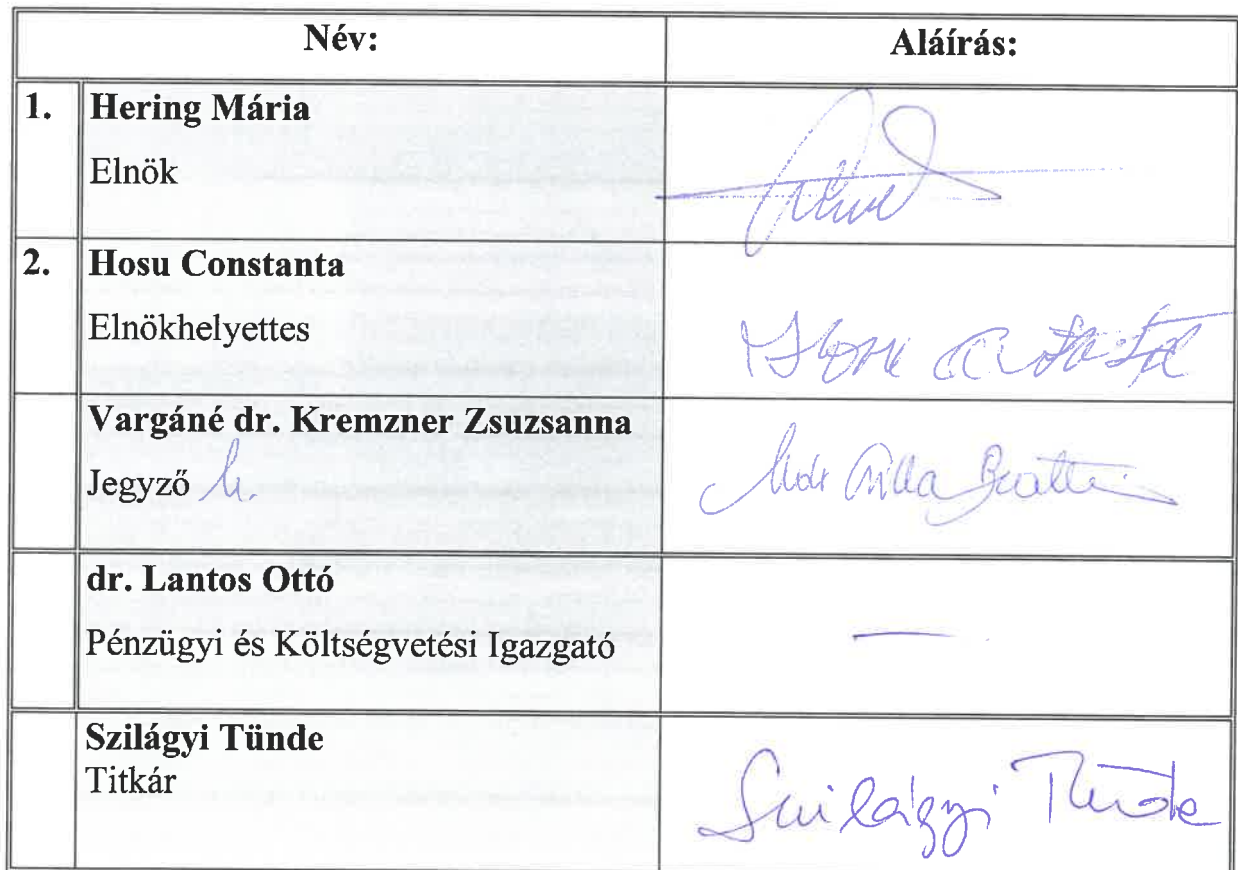 Név: Aláírás:
1. Hering Mária
Elnök
2. Hosu Constanta
Elnökhelyettes
Vargáné dr. Kremzner Zsuzsanna
Jegyző h.
dr. Lantos Ottó
Pénzügyi és Költségvetési Igazgató
—
Szilágyi Tünde
Titkár
Szilágyi Tünde